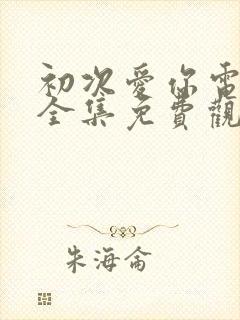 初次愛你電
全集免費觀
朱海侖